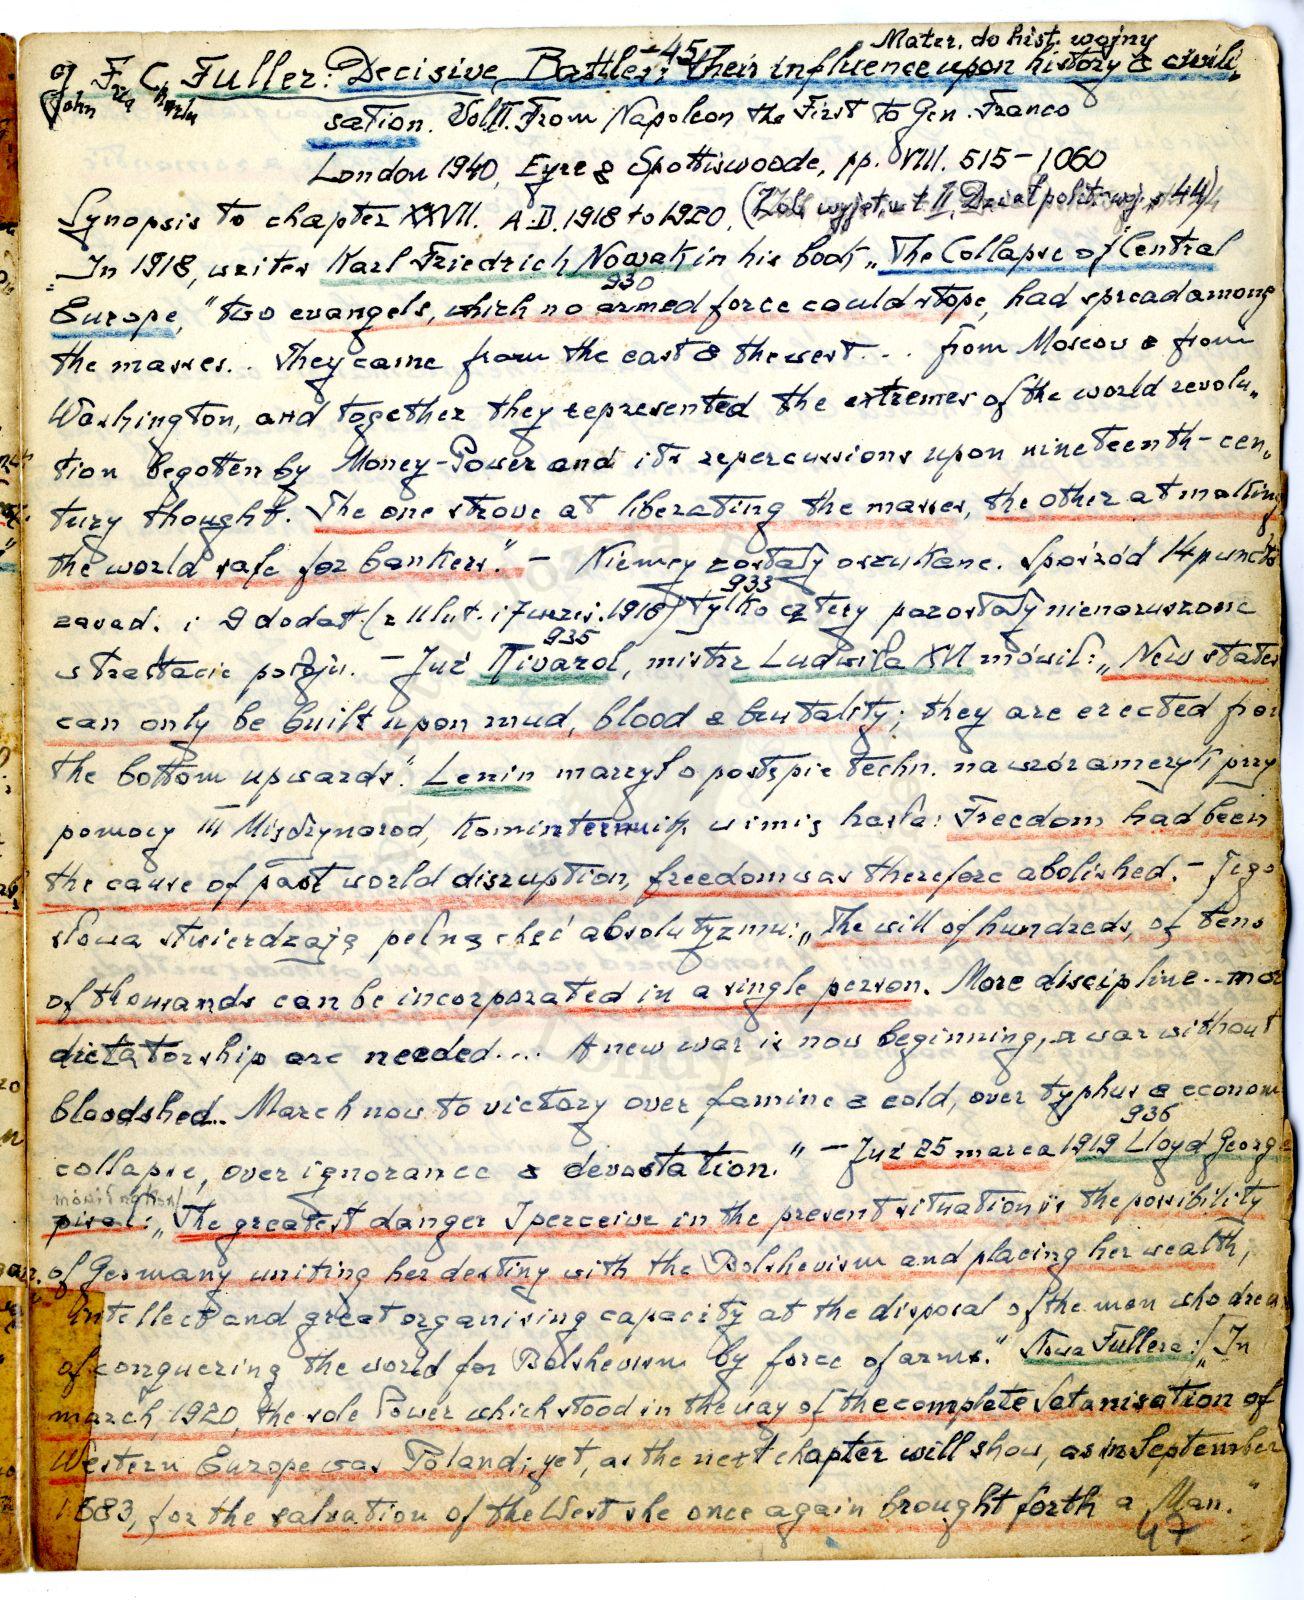 Mater. do hist. wojny
-45-
J F. C. Fuller: Decisive Battles: Their influence upon history & civili„
John Charles
sation. Vol II. From Napoleon the First to Gen. Franco
London 1940, Eyre & Spottiswoode, pp. VIII. 515-1060
Synopsis to chapter XXVII. A.D. 1918 to 1920. (Zob. wyjęt. w t II, Dział polit. woj. s 44)
„In 1918, writes Karl Friedrich Nowak in his book „The Collapse of Central
930
Europe," two evangels, which no armed force could stope, had spread among
the masses.. They came from the east & the west... from Moscow & from
Washington, and together they represented the extremes of the world revolu„
tion begotten by Money-Power and its repercussions upon nineteenth-cen„
tury thought. The one strove at liberating the masses, the other at making
the world safe for bankers." - Niemcy zostały oszukane. Spośród 14 punctó
933
zasad. i 9 dodat. (z 11 lut. i 7 wrześ. 1918) tylko cztery pozostały nienaruszone
935
w traktacie pokoju. - Już Rivarol, mistrz Ludwika XVI mówił: „New states
can only be built upon mud, blood & brutality; they are erected from
the bottom upwards." Lenin marzył o postępie techn. na wzór ameryk przy
pomocy III Międzynarod, w imię hasła: Freedom had been
the cause of past world disruption, freedom was therefore abolished. - Jego
słowa stwierdzają pełną chęć absolutyzmu: „The will of hundreds, of tens
of thousands can be incorporated in a single person. More discipline.. more
dictatorship are needed.... A new war is now beginning, a war without
bloodshed.. March now to victory over famine & cold, over typhus & econom
936
collapse, over ignorance & devastation." - Już 25 marca 1919 Lloyd George
pisał: „The greatest danger I perceive in the present situation is the possibility
of Germany uniting her destiny with the Bolshevism and placing her wealth,
intellect and great organising capacity at the disposal of the men who dream
of conquering the world for Bolshevism by force of arms." Słowa Fullera: „In
march, 1920, the sole Power which stood in the way of the complete Satanisation of
Western Europe was Poland; yet, as the next chapter will show, as in September
1683, for the salvation of the West she once again brought forth a Man."
47